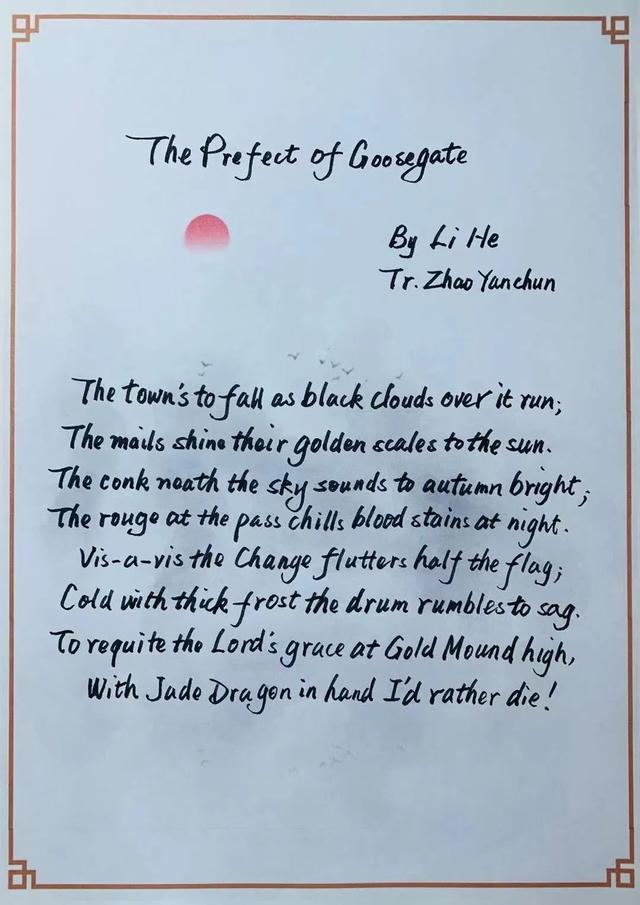 The Prefect of Goosegate
By Li He
Tr. Zhao Yanchun
The town's to fall as black clouds over it run;
The mails shine their golden scales to the sun.
The conk neath the sky sounds to autumn bright;
The rouge at the pass chills blood stains at night.
Vis-a-vis the Change flutters half the flag;
Cold with thick frost the drum rumbles to sag.
To requite the Lord's grace at Gold Mound high,
With Jade Dragon in hand I'd rather die!